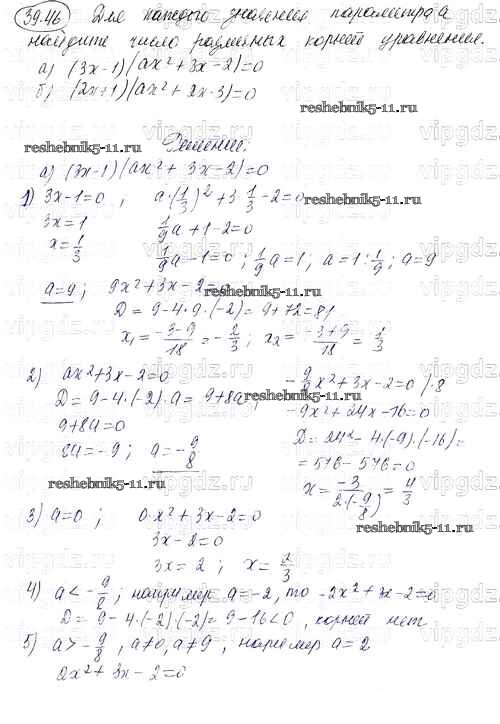 39.46 Для каждого значения параметра a
найдите число различных корней уравнения.
а) (3x-1)(ax²+3x-2)=0
б) (2x+1)(ax²+2x-3)=0
reshebnik5-11.ru
reshebnik5-11.ru
Решение:
а) (3x-1)(ax²+3x-2)=0
1) 3x-1=0, a·(1/3)²+3·1/3-2=0
3x=1 1/9a+1-2=0
x=1/3 1/9a-1=0; 1/9a=1; a=1:1/9; a=9
a=9; 9x²+3x-2=0
reshebnik5-11.ru
D=9-4·9·(-2)=9+72=81
x₁=(-3-9)/18=-2/3; x₂=(-3+9)/18=1/3
2) ax²+3x-2=0 -9/8x²+3x-2=0 /·8
D=9-4·(-2)·a=9+8a; -9x²+24x-16=0
reshebnik5-11.ru
9+8a=0 D=24²-4·(-9)·(-16)=
8a=-9; a=-9/8 =576-576=0
x=-3/(2·(-9/8))=4/3
reshebnik5-11.ru
3) a=0; 0·x²+3x-2=0
3x-2=0
3x=2; x=2/3
reshebnik5-11.ru
4) a<-9/8; например a=-2, то -2x²+3x-2=0
D=9-4·(-2)·(-2)=9-16<0, корней нет
5) a>-9/8, a≠0, a≠9, например a=2
2x²+3x-2=0